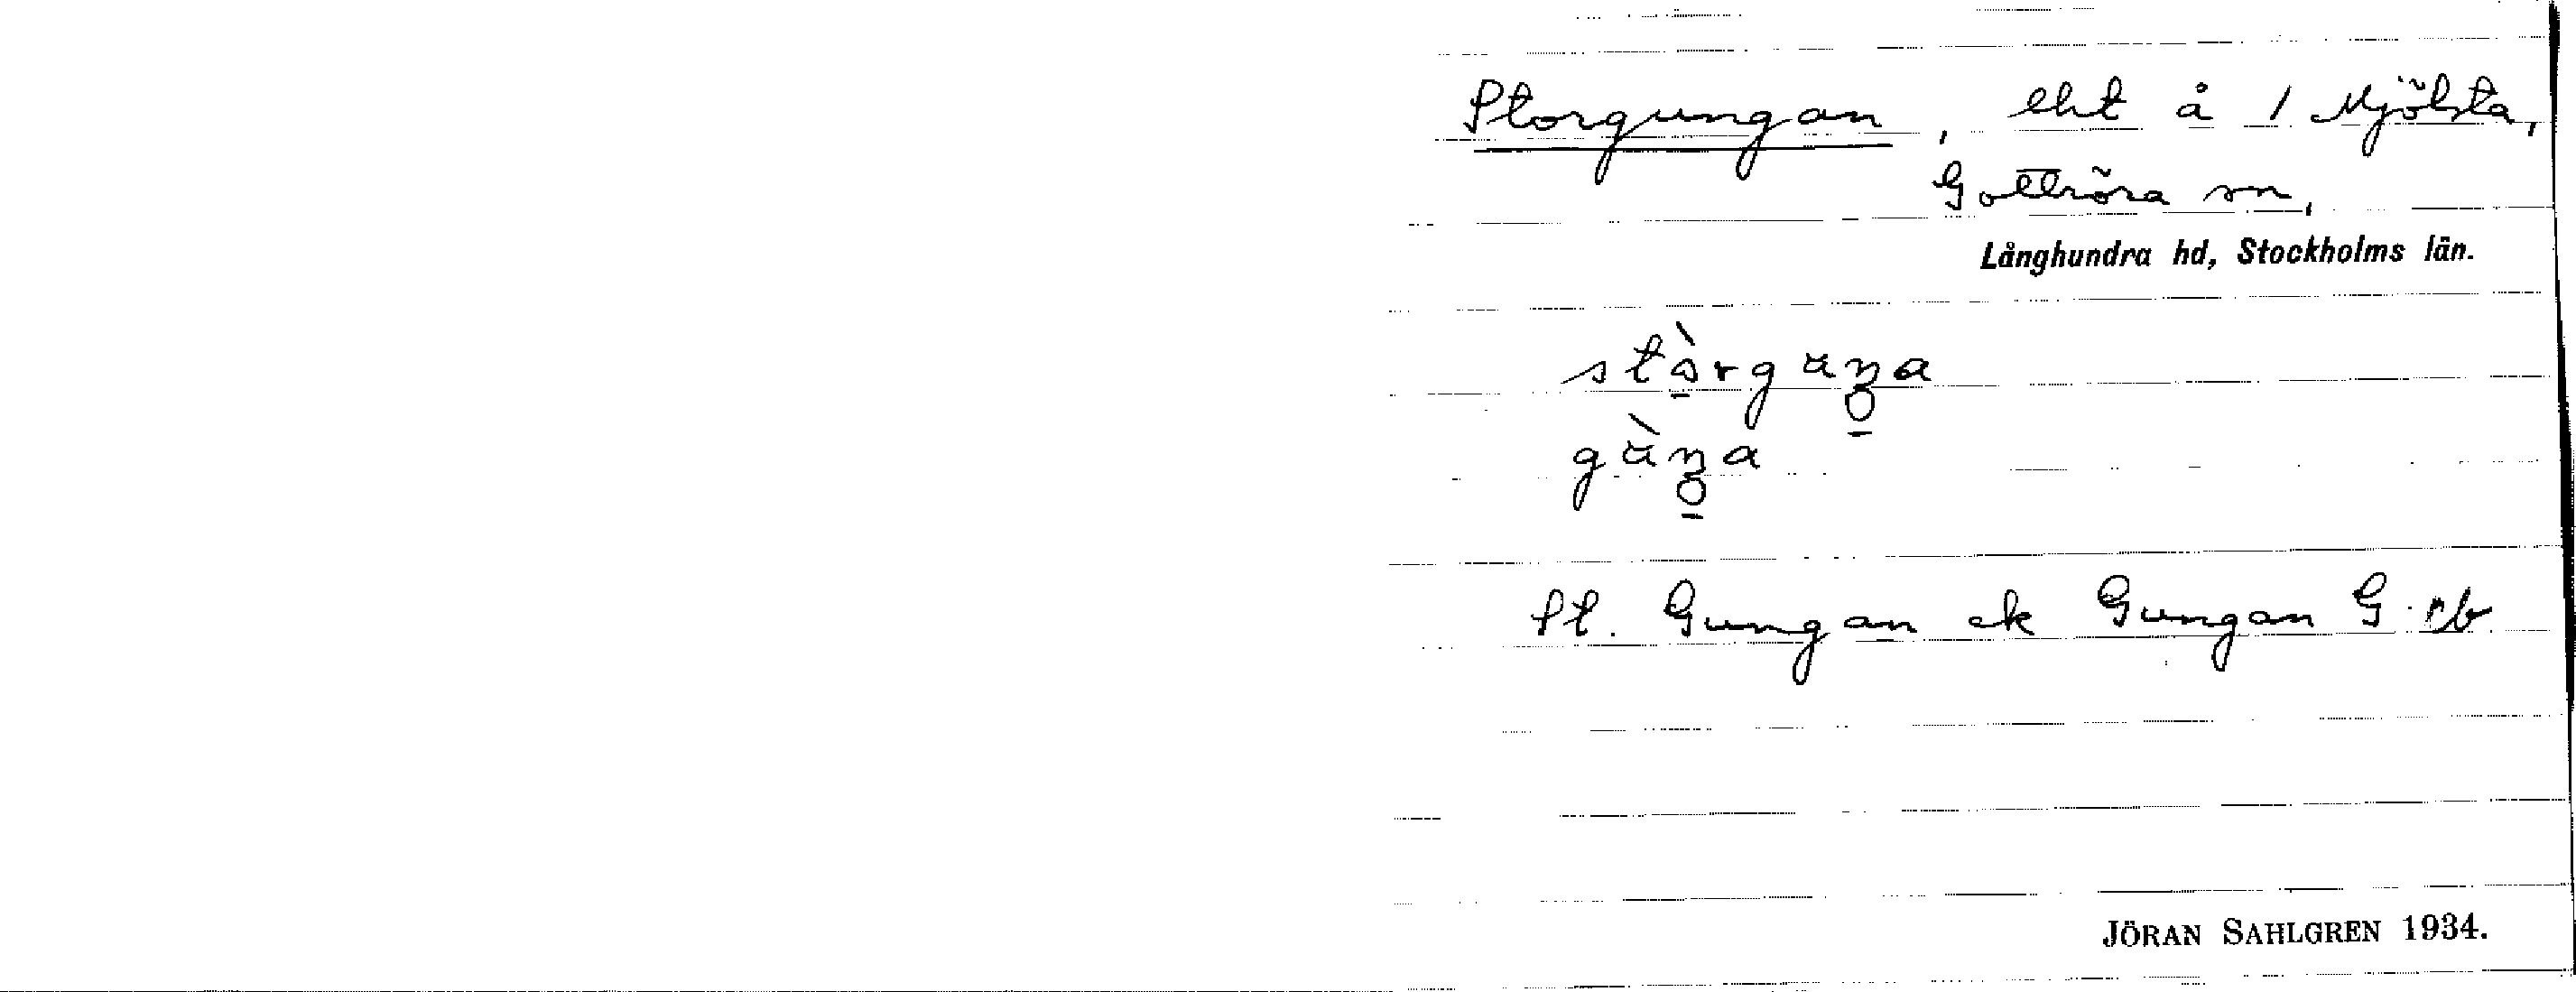 Storgungan, eht å 1 Mjölsta,
Gottröra sn,
Långhundra hd, Stockholms län.
St. Gungan ek Gungan G
JÖRAN SAHLGREN 1934.